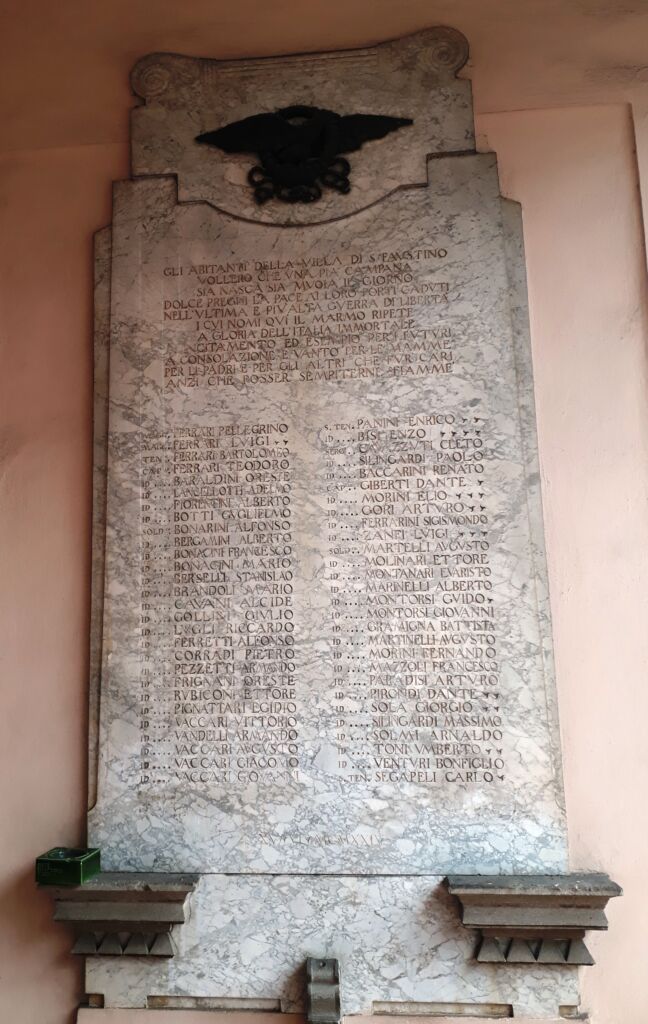 GLI ABITANTI DELLA VILLA DI S. FAVSTINO
VOLLERO CHE VNA PIA CAMPANA
SIA NASCA SIA MVOIA IL GIORNO
DOLCE PREGHI LA PACE AI LORO FORTI CADVTI
NELL'VLTIMA E PIV ALTA GVERRA DI LIBERTA
I CVI NOMI QVI IL MARMO RIPETE
A GLORIA DELL'ITALIA IMMORTALE
INCITAMENTO ED ESEMPIO PER I FVTVRI
A CONSOLAZIONE E VANTO PER LE MAMME
PER LI PADRI E PER GLI ALTRI CHE FVR CARI
ANZI CHE FOSSER SEMPITERNE FIAMME
FERRARI PELLEGRINO
FERRARI LVIGI
TEN. FERRARI BARTOLOMEO
CAP. FERRARI TEODORO
ID.... BARALDINI ORESTE
ID.... LANCELLOTTI ADELMO
ID.... FIORENTINI ALBERTO
ID.... BOTTI GVGLIELMO
SOLD. BONARINI ALFONSO
ID.... BERGAMINI ALBERTO
ID.... BONACINI FRANCESCO
ID.... BONACINI MARIO
ID.... BERSELLI STANISLAO
ID.... BRANDOLI MARIO
ID.... CAVANI ALCIDE
ID.... GOLLINI GIVLIO
ID.... LVGLI RICCARDO
ID.... FERRETTI ALFONSO
ID.... CORRADI PIETRO
ID.... PEZZETTI ARMANDO
ID.... FRIGNANI ORESTE
ID.... RVBICONI ETTORE
ID.... PIGNATTARI EGIDIO
ID.... VACCARI VITTORIO
ID.... VANDELLI ARMANDO
ID.... VACCARI AVGVSTO
ID.... VACCARI GIACOMO
ID.... VACCARI GIOVANNI
S. TEN. PANINI ENRICO
ID.... BISI ENZO
SERG. CAVAZZVTI CLETO
ID.... SILINGARDI PAOLO
ID.... BACCARINI RENATO
CAP. GIBERTI DANTE
ID.... MORINI ELIO
ID.... GORI ARTVRO
ID.... FERRARINI SIGISMONDO
ID.... ZANFI LVIGI
SOLD. MARTELLI AVGVSTO
ID.... MOLINARI ETTORE
ID.... MONTANARI EVARISTO
ID.... MARINELLI ALBERTO
ID.... MONTORSI GVIDO
ID.... MONTORSI GIOVANNI
ID.... GRAMIGNA BATTISTA
ID.... MARTINELLI AVGVSTO
ID.... MORINI FERNANDO
ID.... MAZZOLI FRANCESCO
ID.... PARADISI ARTVRO
ID.... PIRONDI DANTE
ID.... SOLA GIORGIO
ID.... SILINGARDI MASSIMO
ID.... SOLMI ARNALDO
ID.... TONI VMBERTO
ID.... VENTVRI BONFIGLIO
S. TEN. SEGAPELI CARLO